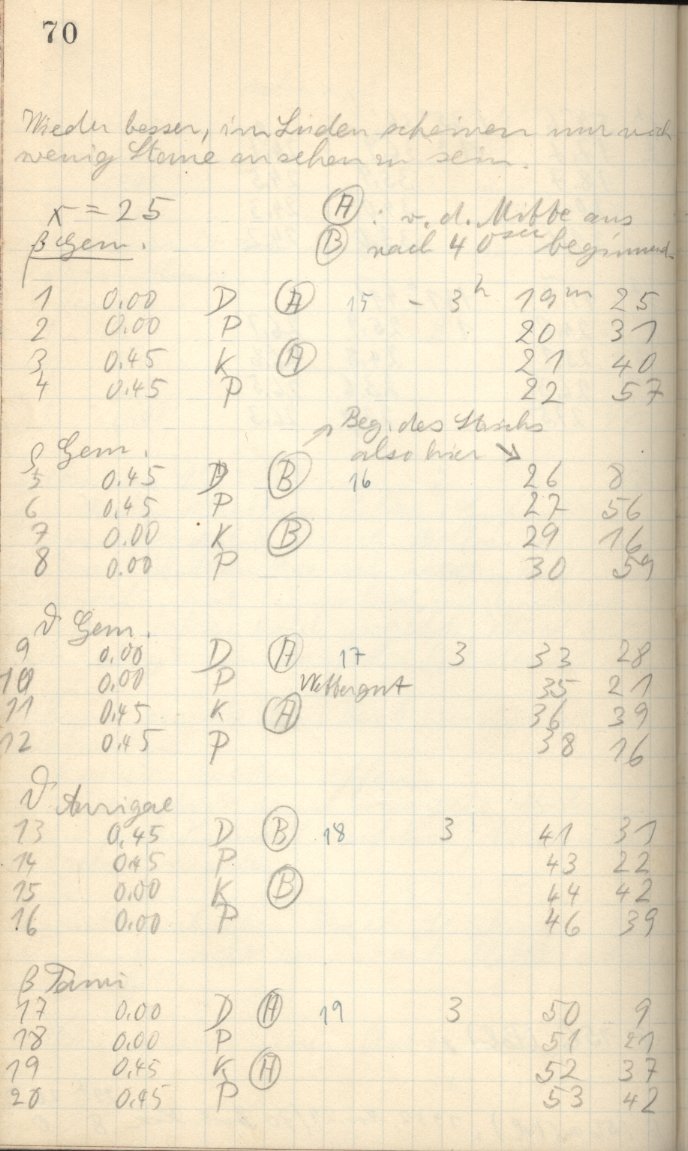 70
Wieder besser, im Süden scheinen nur noch
wenig Sterne zu sehen zu sein.
x = 25 Ⓐ : v. d. Mitte aus
β Gem. Ⓑ nach 40sec beginnend
1 0.00 D Ⓐ 15 - 3h 19m 25
2 0.00 P 20 31
3 0.45 K Ⓐ 21 40
4 0.45 P 22 57
Beg. des Strichs
Gem. also hier ↘
5 0.45 D Ⓑ 16 26 8
6 0.45 P 27 56
7 0.00 K Ⓑ 29 16
8 0.00 P 30 59
ϑ Gem.
9 0.00 D Ⓐ 17 3 33 28
10 0.00 P Wetter gut 35 21
11 0.45 K Ⓐ 36 39
12 0.45 P 38 16
ϑ Aurigae
13 0.45 D Ⓑ 18 3 41 31
14 0.45 P 43 22
15 0.00 K Ⓑ 44 42
16 0.00 P 46 39
β Tauri
17 0.00 D Ⓐ 19 3 50 9
18 0.00 P 51 21
19 0.45 K Ⓐ 52 37
20 0.45 P 53 42